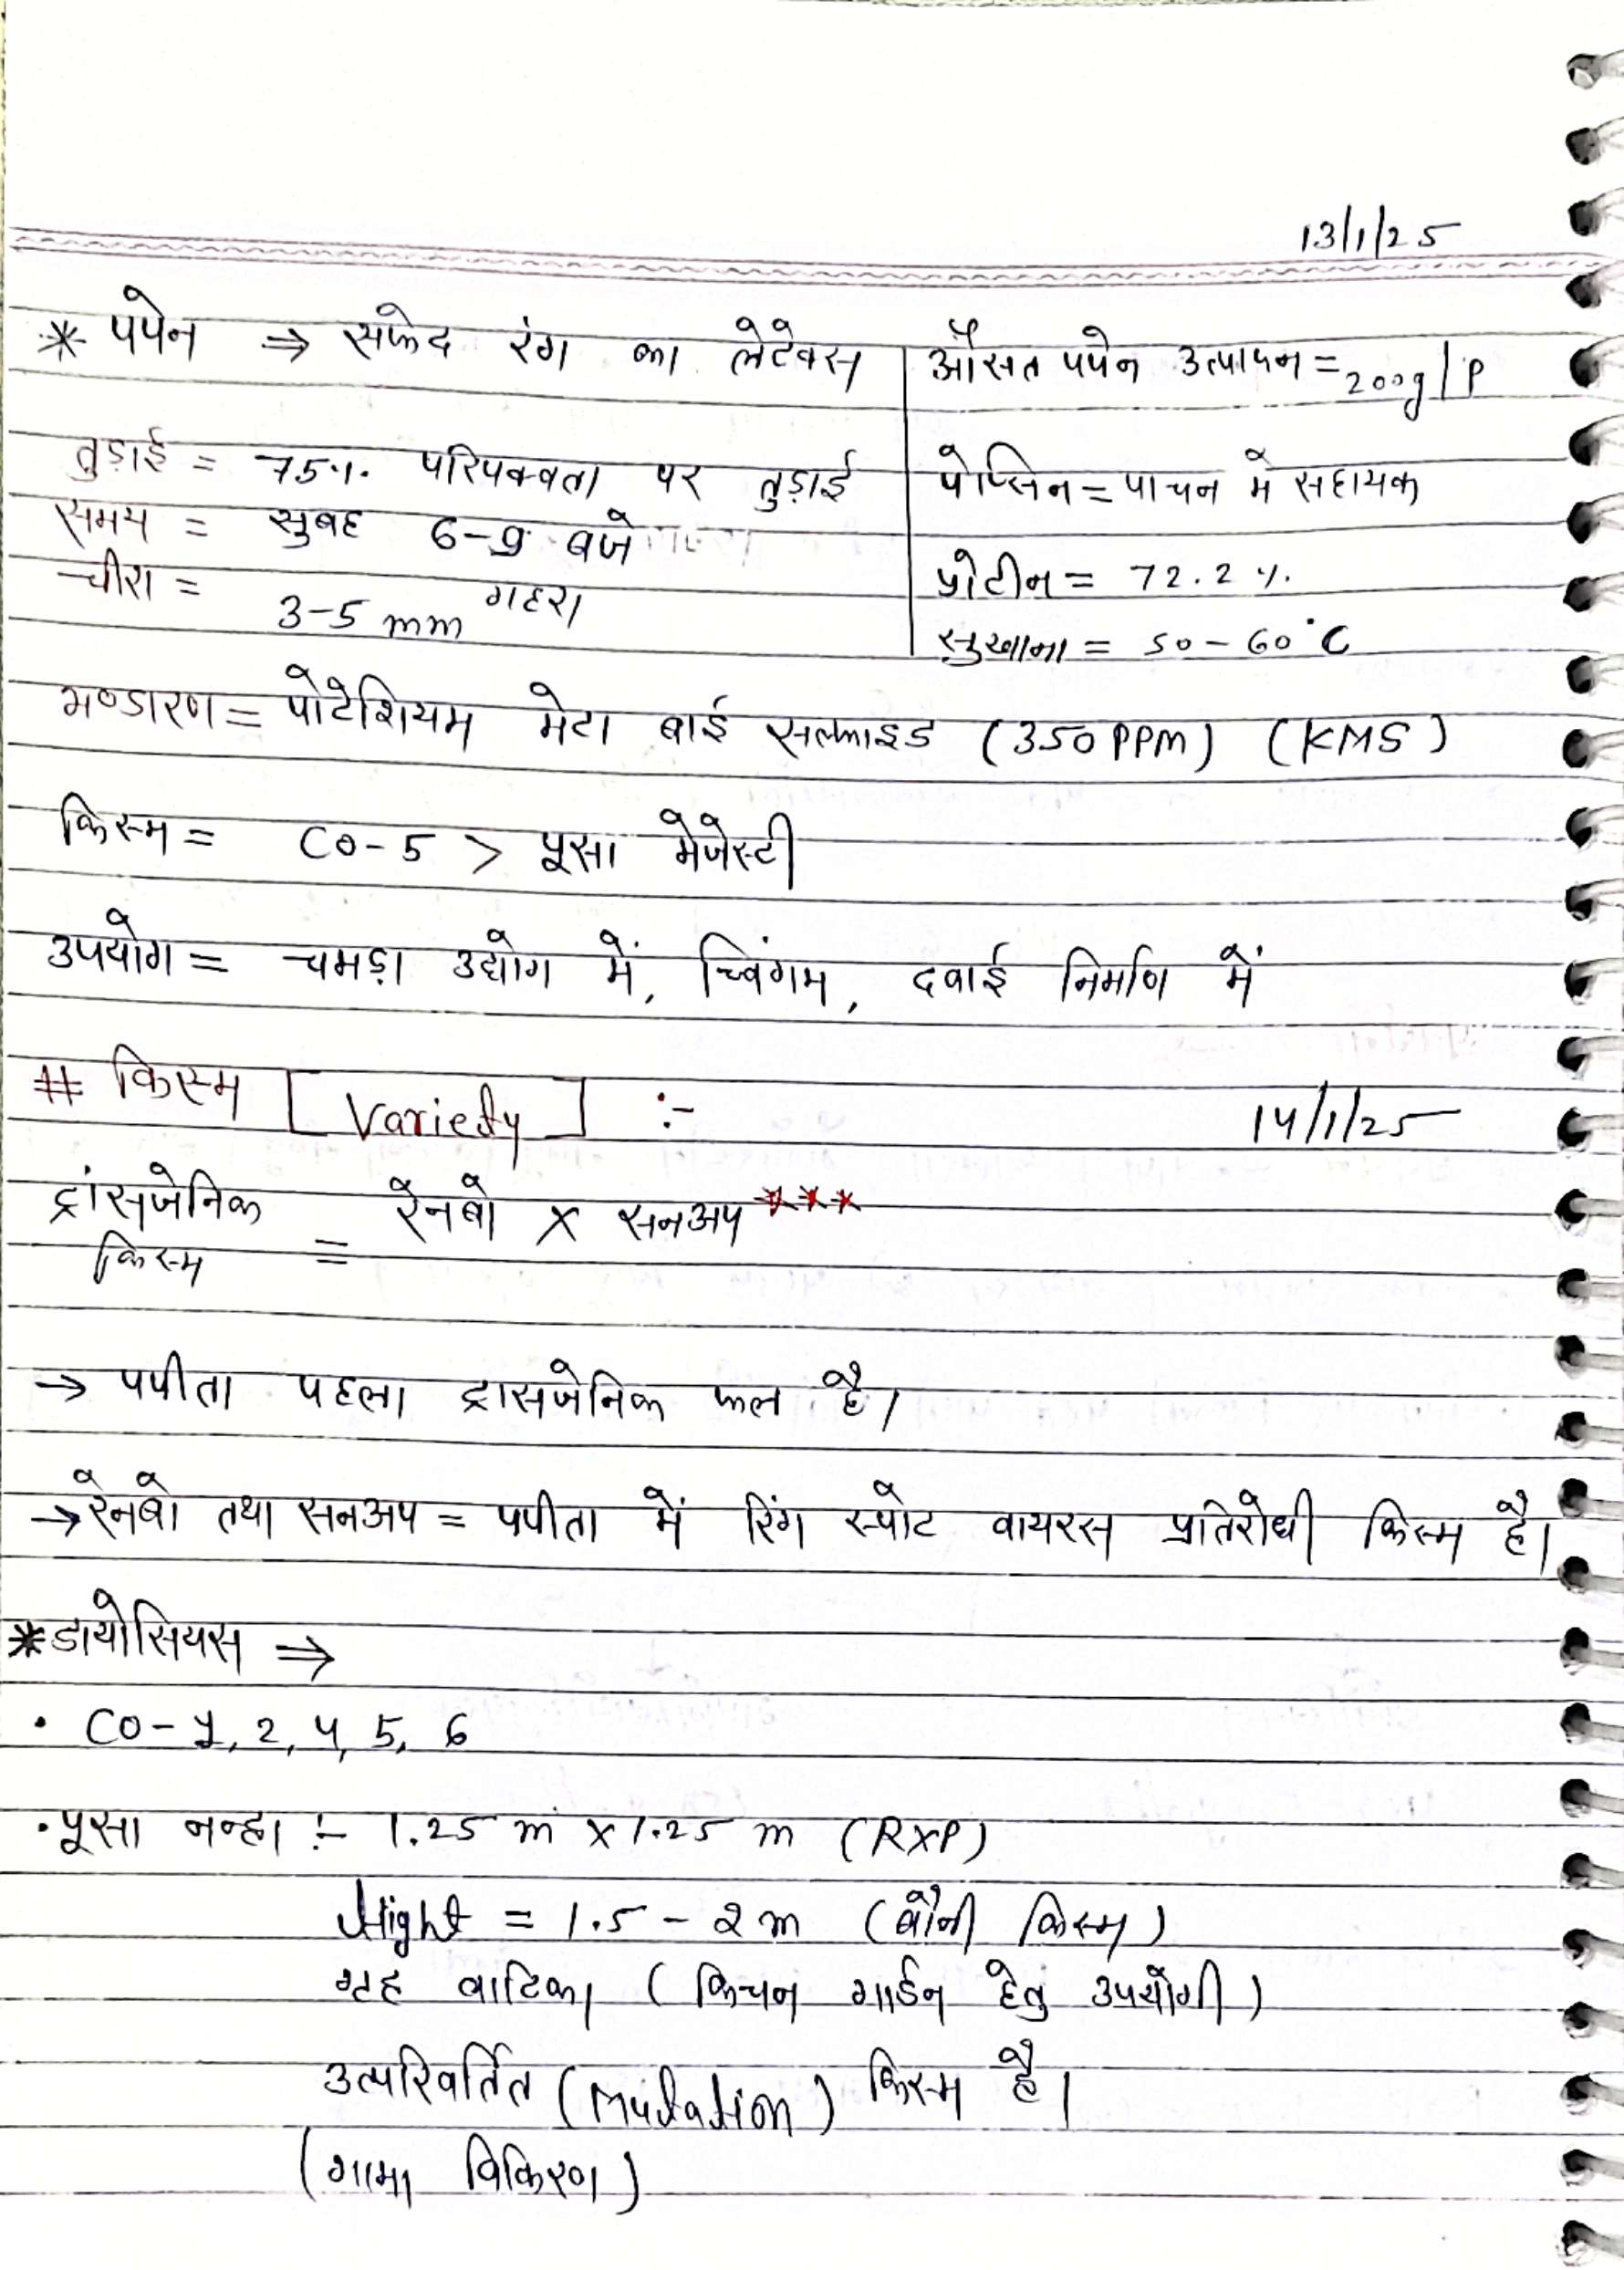 13/1/25
* पपेन ⇒ सफेद रंग का लेटेक्स
तुड़ाई = 75% परिपक्वता पर तुड़ाई
समय = सुबह 6-9 बजे
चीरा = 3-5 mm गहरा
औसत पपेन उत्पादन = 200g/P
पेप्सिन = पाचन मे सहायक
प्रोटीन = 72.2%
सुखाना = 50-60°C
भण्डारण = पोटेशियम मेटा बाई सल्फाइड (350 PPM) (KMS)
किस्म = CO-5 > पूसा मेजेस्टी
उपयोग = चमड़ा उद्योग में, च्विंगम, दवाई निर्माण में
# किस्म [Variety] :-
14/1/25
ट्रांसजेनिक किस्म = रेनबो x सनअप ***
→ पपीता पहला ट्रासजेनिक फल है।
→ रेनबो तथा सनअप = पपीता में रिंग स्पोट वायरस प्रतिरोधी किस्म है।
* डायोसियस ⇒
• CO-1, 2, 4, 5, 6
• पूसा नन्हा :- 1.25 m x 1.25 m (RXP)
Hight = 1.5 - 2 m (बौनी किस्म)
गृह वाटिका (किचन गार्डन हेतु उपयोगी)
उत्परिवर्तित (Mutation) किस्म है।
(गामा विकिरण)